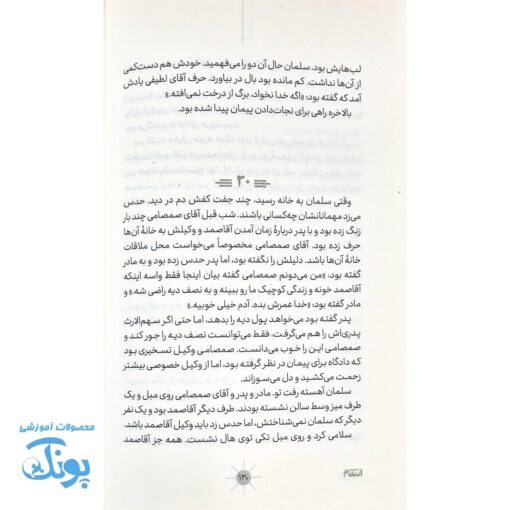 لب‌هایش بود. سلمان حال آن دو را می‌فهمید. خودش هم دست‌کمی
از آن‌ها نداشت. کم مانده بود بال در بیاورد. حرف آقای لطیفی یادش
آمد که گفته بود: «اگه خدا نخواد، برگ از درخت نمی‌افته.»
بالاخره راهی برای نجات‌دادن پیمان پیدا شده بود.
۳۰
وقتی سلمان به خانه رسید، چند جفت کفش دم در دید. حدس
می‌زد مهمانانشان چه‌کسانی باشند. شب قبل آقای صمصامی چند بار
زنگ زده بود و با پدر دربارهٔ زمان آمدن آقاصمد و وکیلش به خانهٔ آن‌ها
حرف زده بود. آقای صمصامی مخصوصاً می‌خواست محل ملاقات
خانهٔ آن‌ها باشد. دلیلش را نگفته بود، اما پدر حدس زده بود و به مادر
گفته بود: «من می‌دونم صمصامی گفته بیان اینجا فقط واسه اینکه
آقاصمد خونه و زندگی کوچیک ما رو ببینه و به نصف دیه راضی شه.» و
مادر گفته بود: «خدا عمرش بده. آدم خیلی خوبیه.»
پدر گفته بود می‌خواهد پول دیه را بدهد، اما حتی اگر سهم‌الارث
پدری‌اش را هم می‌گرفت، فقط می‌توانست نصف دیه را جور کند و
صمصامی این را خوب می‌دانست. صمصامی وکیل تسخیری بود
که دادگاه برای پیمان در نظر گرفته بود، اما از وکیل خصوصی بیشتر
زحمت می‌کشید و دل می‌سوزاند.
سلمان آهسته رفت تو. مادر و پدر و آقای صمصامی روی مبل و یک
طرف میز وسط سالن نشسته بودند. طرف دیگر آقاصمد بود و یک نفر
دیگر که سلمان نمی‌شناختش، اما حدس زد باید وکیل آقاصمد باشد.
سلامی کرد و روی مبل تکی توی هال نشست. همه جز آقاصمد
انتقام
۱۳۰
محصولات آموزشی
پونک